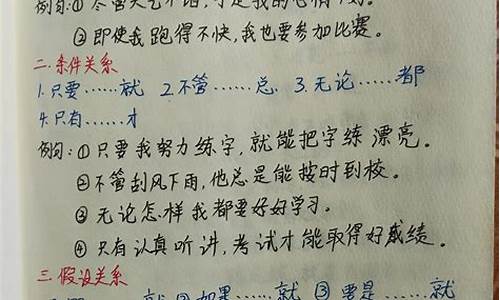 例句:①尽管天气不佳,
②即使我跑得不快,我也要参加比赛。
二.条件关系
1.只要……就 2.不管……总. 3.无论……都
4.只有……才
例句:①只要我努力练字,就能把字练漂亮。
②不管刮风下雨,他总是能按时到校。
③无论怎样我都要好好学习。
④只有认真听讲,考试才能取得好成绩。
三.假设关系
就②如果……就 ③要是……就